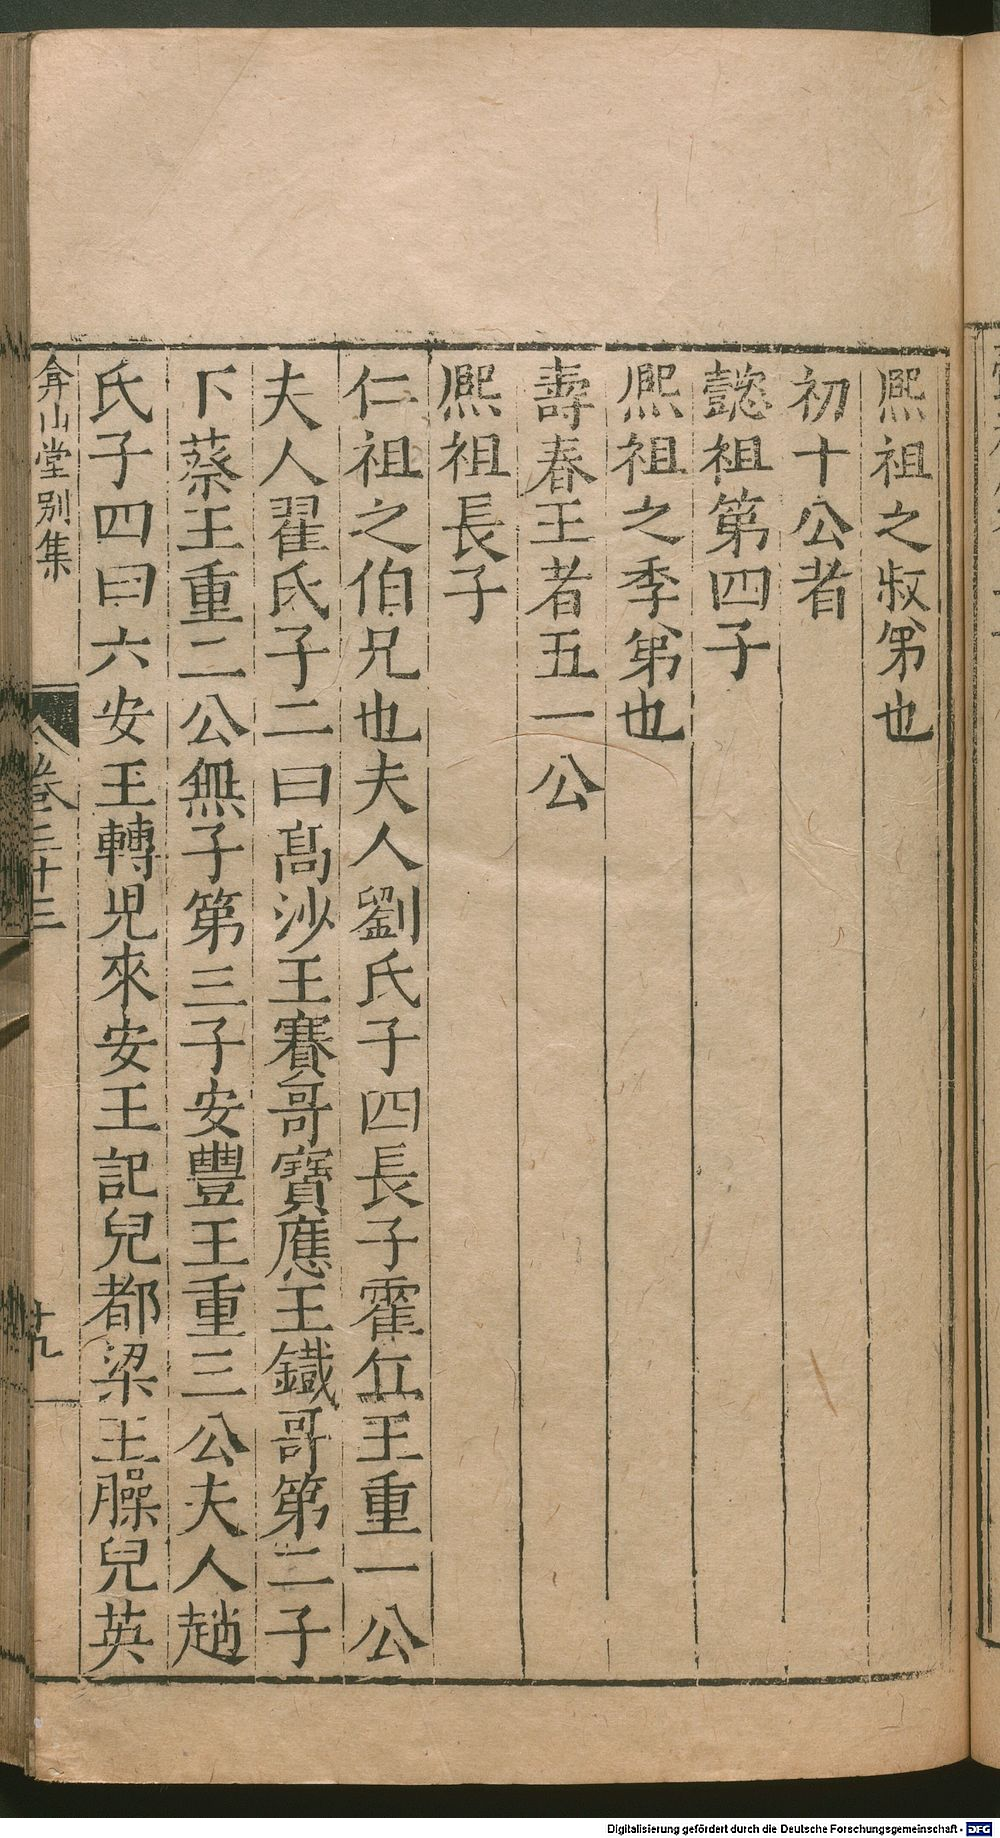 熈祖之叔弟也
初十公者
懿祖第四子
熈祖之季弟也
壽春王者五一公
熈祖長子
仁祖之伯兄也夫人劉氏子四長子霍丘王重一公
夫人翟氏子二曰髙沙王賽哥寶應王鐡哥第二子
下蔡王重二公無子第三子安豐王重三公夫人趙
氏子四曰六安王轉兒來安王記兒都梁王臊兒英
弇山堂别集
卷三十三
十九
Digitalisierung gefördert durch die Deutsche Forschungsgemeinschaft - DFG